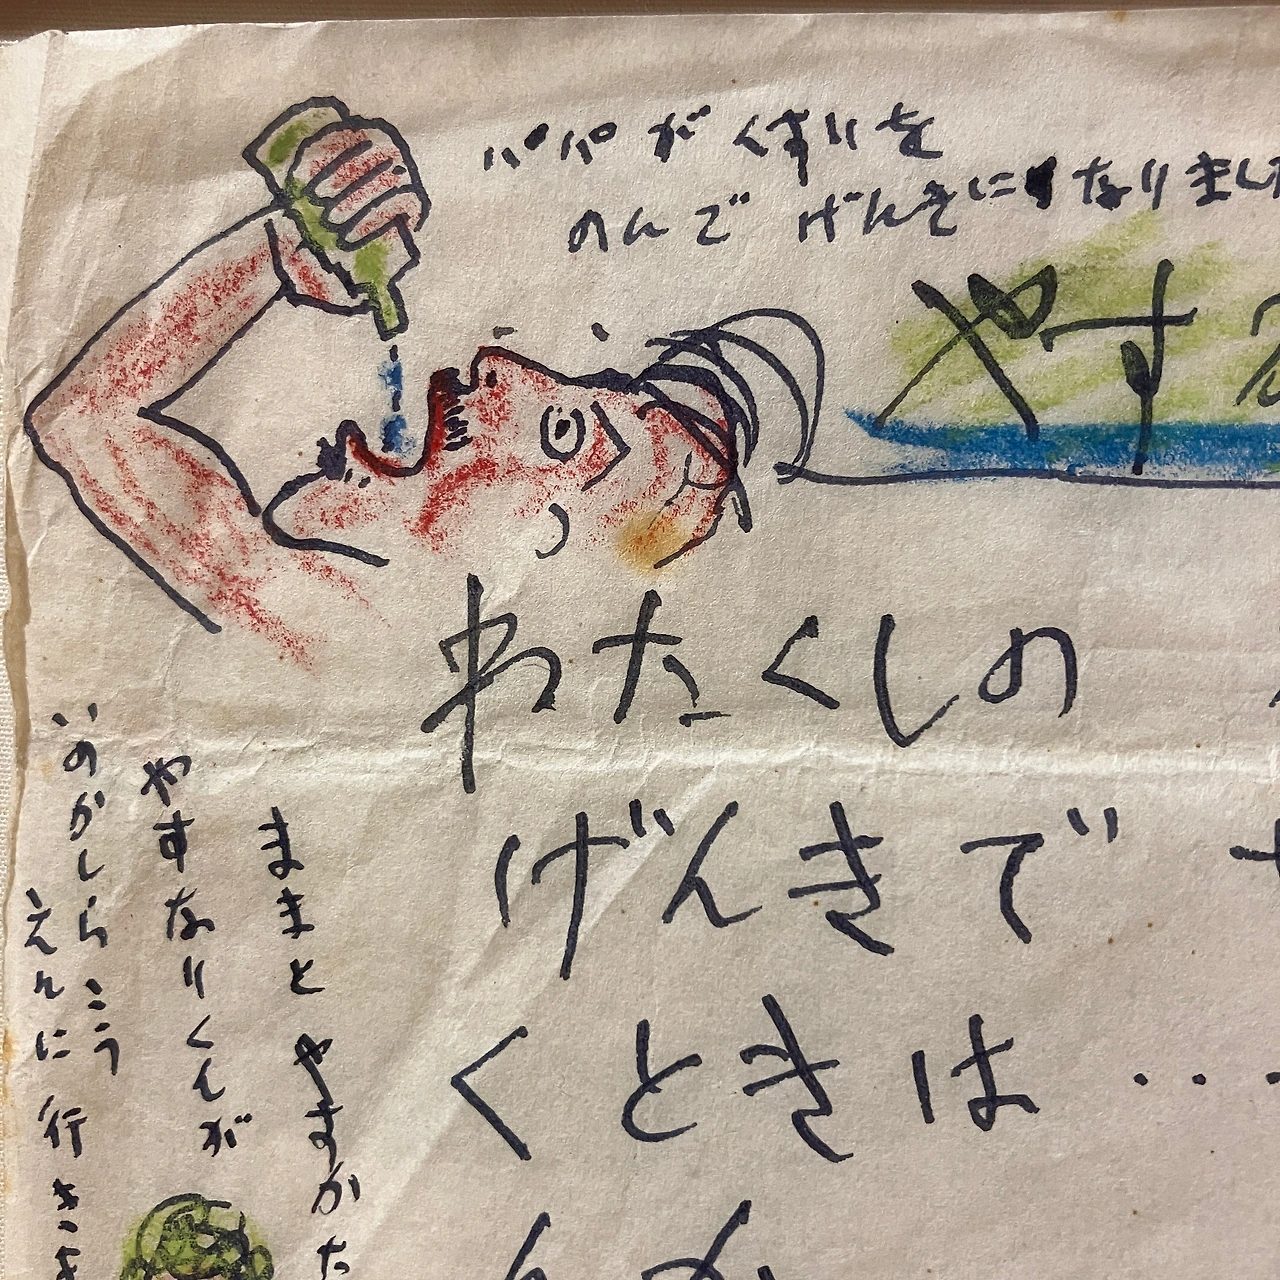 パパがくすりを
のんでげんきになりました
やす
わたくしの
げんきで
くときは・・・
ままとやすかた
やすなりくんが
いのかしらこう
えんに行きま